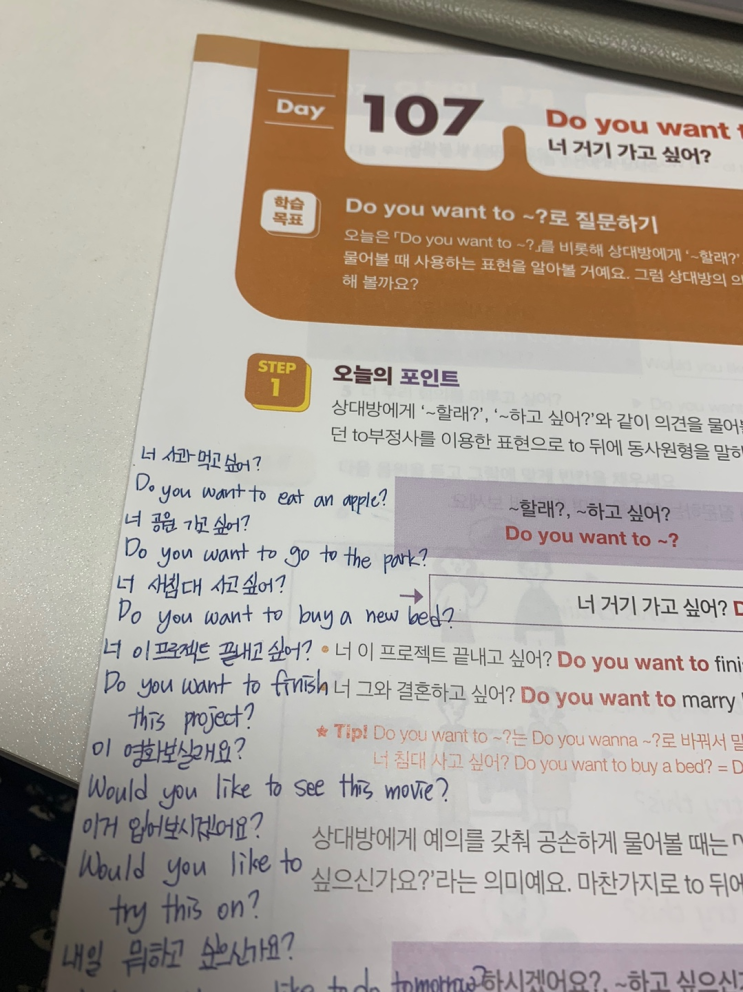 Day 107
Do you want
너 거기 가고 싶어?
학습
목표
Do you want to ~?로 질문하기
오늘은 「Do you want to ~?」를 비롯해 상대방에게 '~할래?'
물어볼 때 사용하는 표현을 알아볼 거예요. 그럼 상대방의
해 볼까요?
STEP
1
오늘의 포인트
상대방에게 '~할래?', '~하고 싶어?'와 같이 의견을
던 to부정사를 이용한 표현으로 to 뒤에 동사원형을
너 사과 먹고 싶어?
Do you want to eat an apple?
너 공원 가고 싶어?
Do you want to go to the park?
너 새침대 사고 싶어?
Do you want to buy a new bed?
너 이 프로젝트 끝내고 싶어?
Do you want to finish
this project?
이 영화보실래요?
Would you like to see this movie?
이거 입어보시겠어요?
Would you like to
try this on?
내일 뭐하고 싶으신가요?
like to do tomorrow?
~할래?, ~하고 싶어?
Do you want to ~?
너 거기 가고 싶어?
너 이 프로젝트 끝내고 싶어? Do you want to
너 그와 결혼하고 싶어? Do you want to marry
★ Tip! Do you want to ~?는 Do you wanna ~?로 바꿔서
너 침대 사고 싶어? Do you want to buy a bed? =
상대방에게 예의를 갖춰 공손하게 물어볼 때는
싶으신가요?'라는 의미예요. 마찬가지로 to 뒤에
하시겠어요?, ~하고